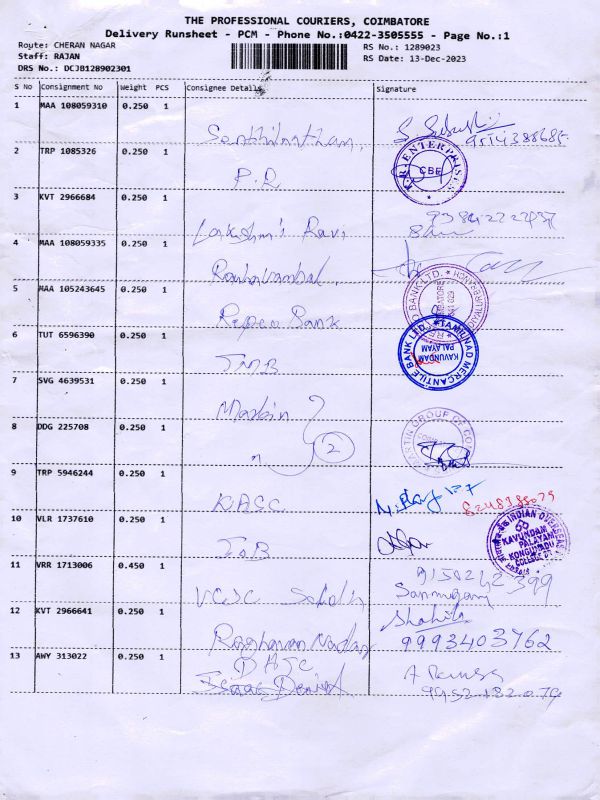 THE PROFESSIONAL COURIERS, COIMBATORE
Delivery Runsheet - PCM - Phone No.:0422-3505555 - Page No.:1
Route: CHERAN NAGAR
RS No.: 1289023
Staff: RAJAN
RS Date: 13-Dec-2023
DRS No.: DCJB128902301
S No Consignment No Weight PCS Consignee Details Signature
1 MAA 108059310 0.250 1
Senthilnathan,
2 TRP 1085326 0.250 1
P.R
ENTERPRISES
CBE
3 KVT 2966684 0.250 1
Lakshmi Ravi
4 MAA 108059335 0.250 1
5 MAA 105243645 0.250 1
Repco Bank
BANK LTD.
6 TUT 6596390 0.250 1
TMB
TAMILNAD MERCANTILE BANK LTD.
KAVUNDAM PALAYAM
7 SVG 4639531 0.250 1
Martin
8 DDG 225708 0.250 1
"
2
MARTIN GROUP OF
9 TRP 5946244 0.250 1
KASC
10 VLR 1737610 0.250 1
IOB
INDIAN OVERSEAS
KAVUNDAM
PALAYAM
KONGUNADU
COLLEGE
11 VRR 1713006 0.450 1
12 KVT 2966641 0.250 1
Shahila
9993403762
13 AWY 313022 0.250 1